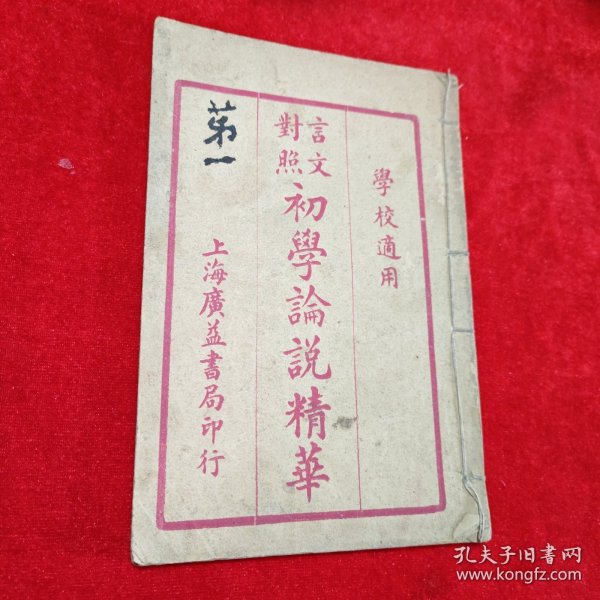 學校適用
言文對照
初學論說精華
上海廣益書局印行
苐一
孔夫子旧书网
www.kongfz.com